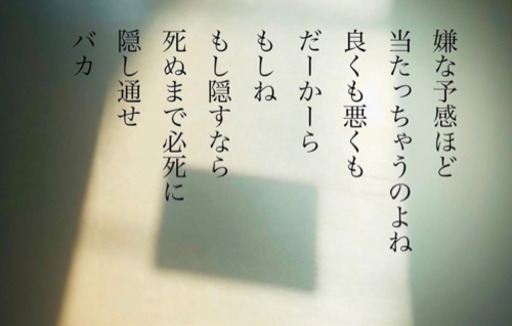 嫌な予感ほど
当たっちゃうのよね
良くも悪くも
だーかーら
もしね
もし隠すなら
死ぬまで必死に
隠し通せ
バカ